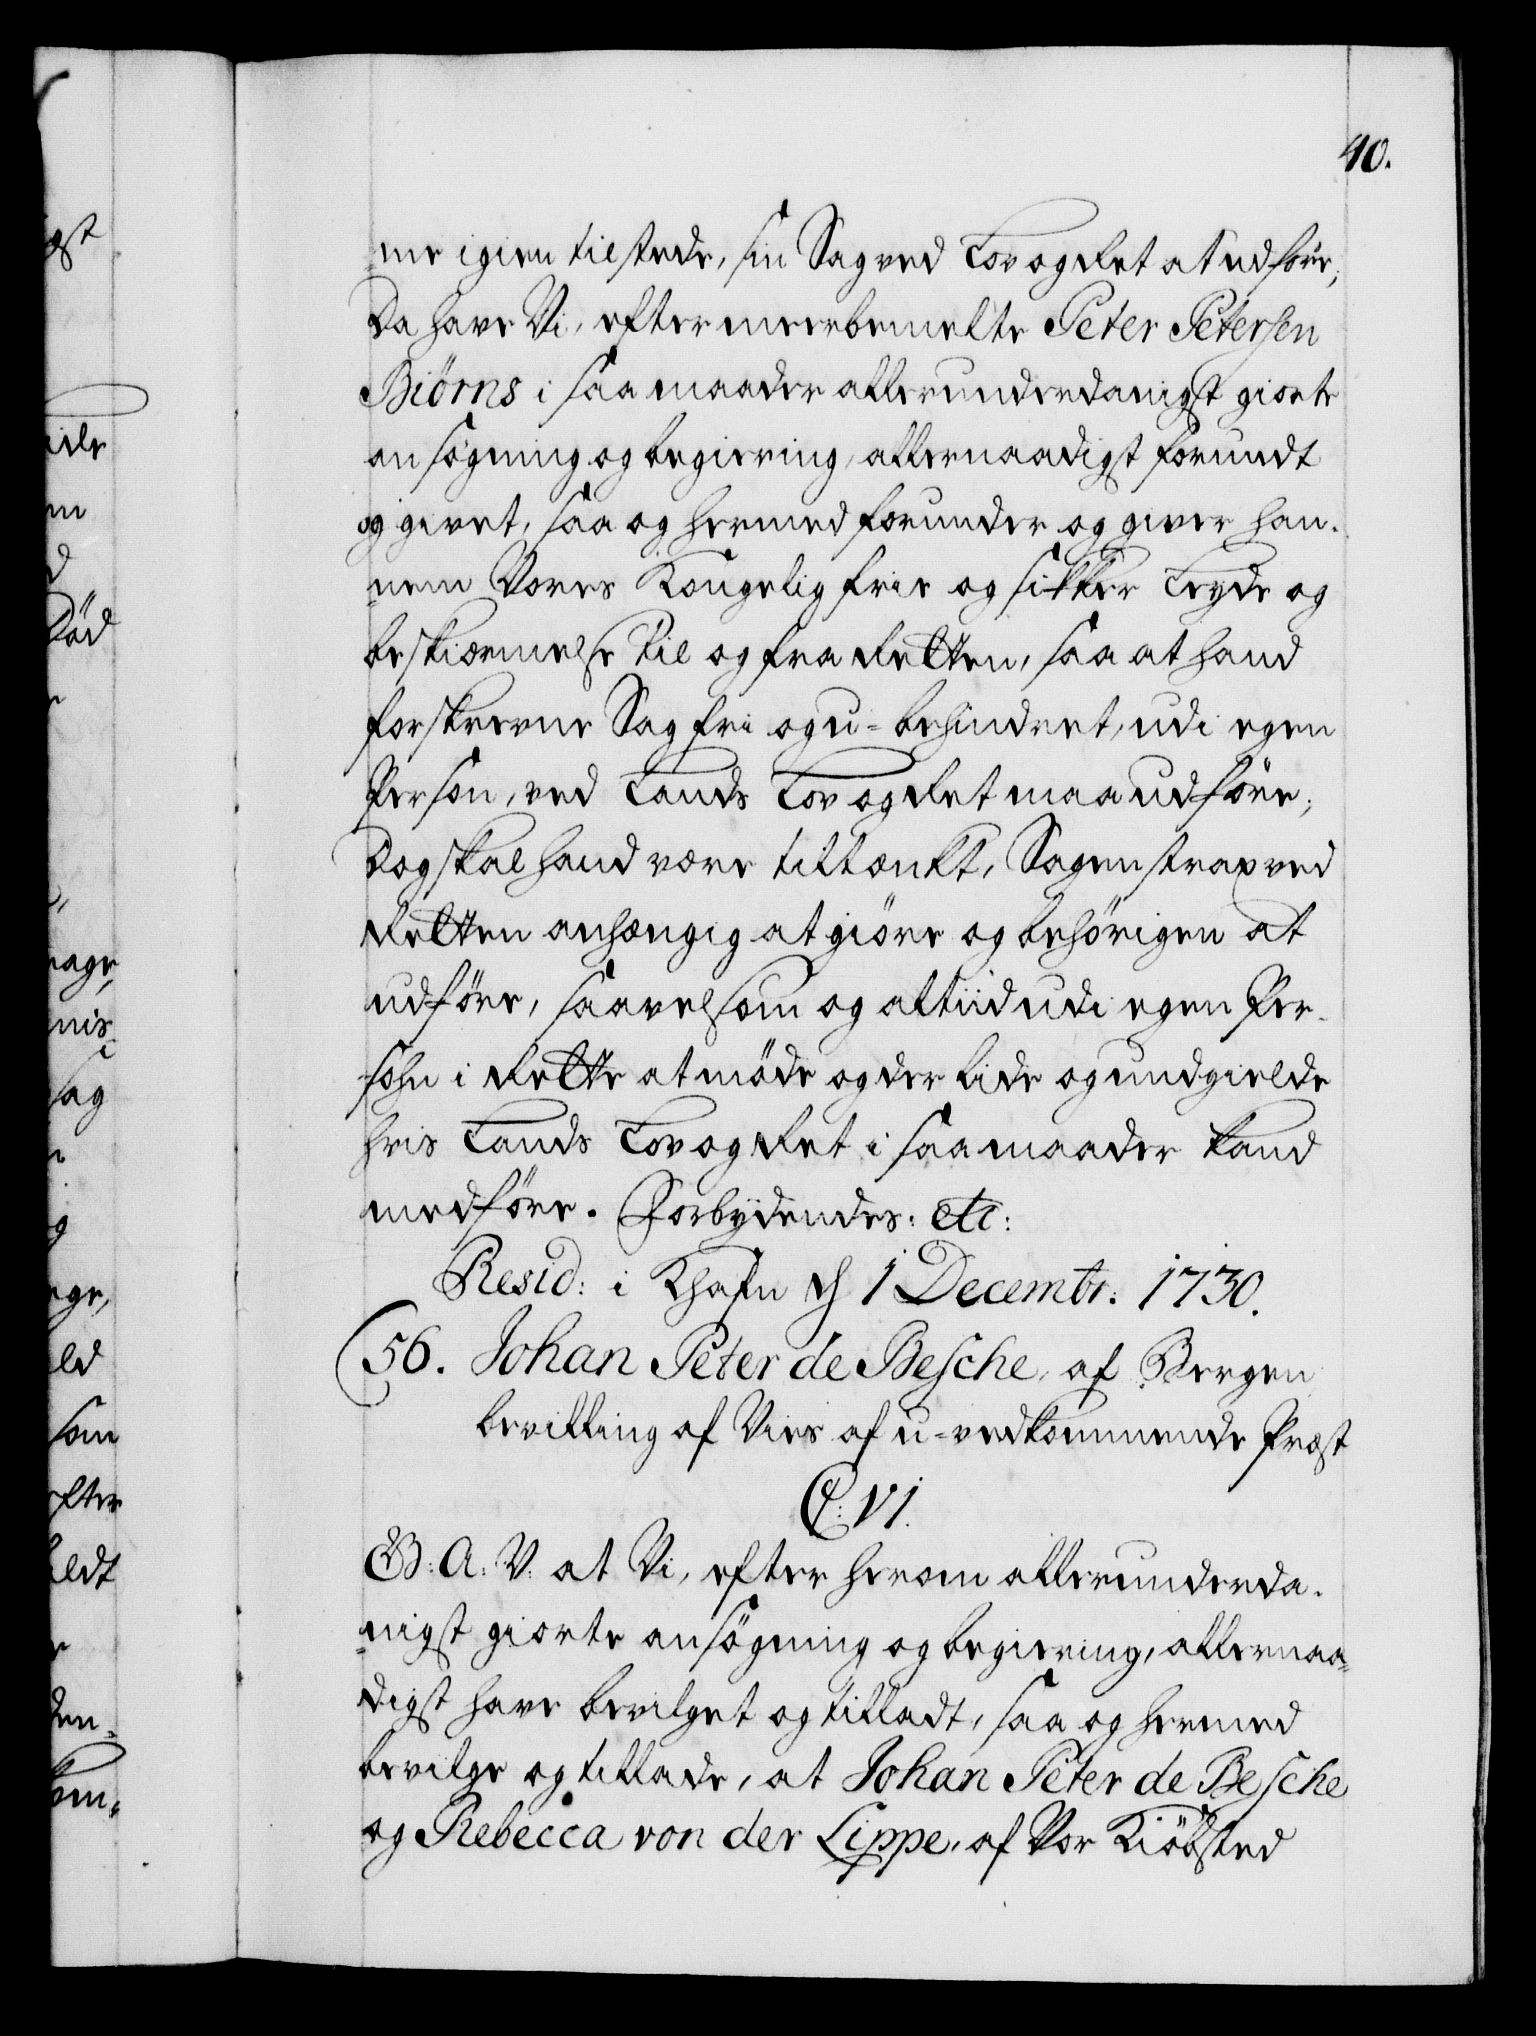 40.
me igien tilstede, sin Sag ved Lov og Ret at udføre,
Da have Vi, efter meerbemelte Peter Petersen
Biörns i saa maader allerunderdanigst giorte
ansøgning og begiering, allernaadigst forundt
og givet, saa og hermed forunder og giver han-
nem Vores Kongelig frie og sikker Leyde og
beskiærmelse til og fra Retten, saa at hand
forskrevne Sag fri og u-behindret, udi egen
Person, ved Lands Lov og Ret maa udføre;
Dog skal hand være tiltænkt, Sagen strax ved
Retten anhængig at giöre og behörigen at
udföre, saavelsom og altiid udi egen Per-
sohn i Rette at möde og der lide og undgielde
hvis Lands Lov og Ret i saa maader kand
medföre. Forbydendes: etc:
Resid: i Khafn d 1 Decembr: 1730.
56. Johan Peter de Besche, af Bergen
bevilling af Vies af u-vedkommende Præst
C: VI.
G: A: V: at Vi, efter herom allerunderda-
nigst giorte ansögning og begiering, allernaa-
digst have bevilget og tilladt, saa og hermed
bevilge og tillade, at Johan Peter de Besche
og Rebecca von der Lippe, af Vor Kiöbsted